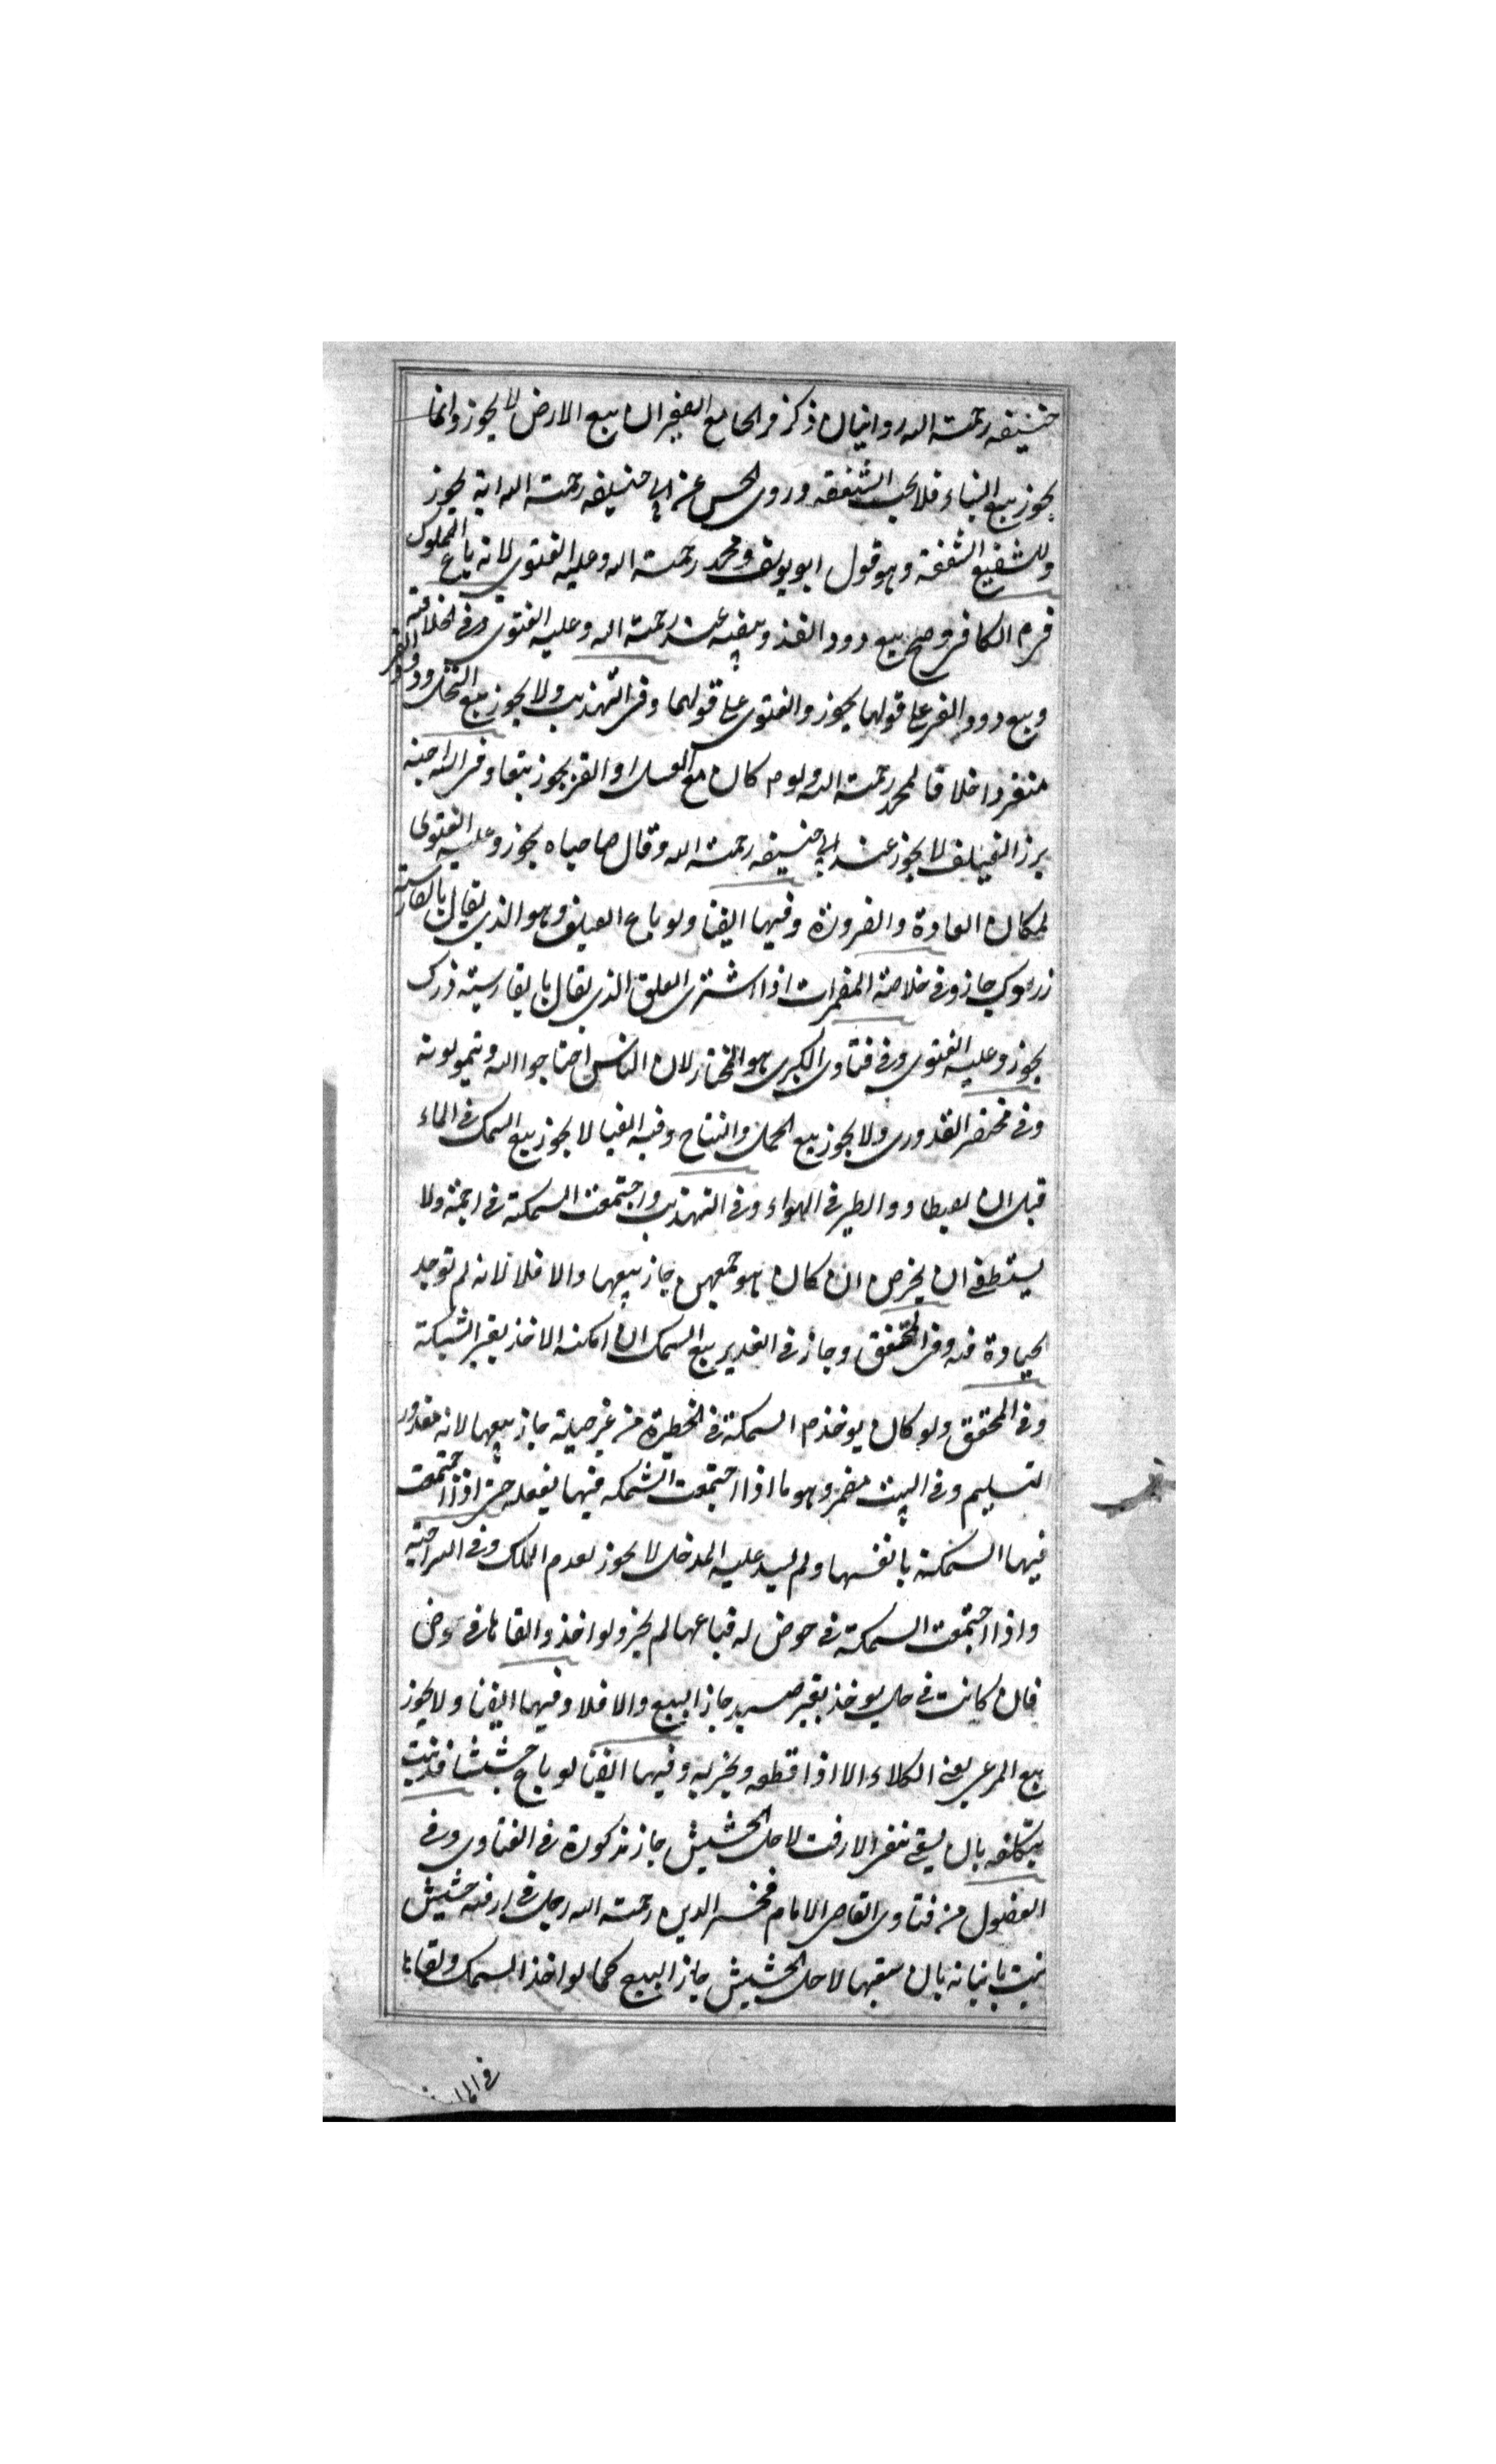 حنيفه رحمته الله روايتان ذكر فى الجامع الصغير ان بيع الارض لا يجوز وانما
يجوز بيع البناء فلا يجب الشفعه وروى الحسن عن ابى حنيفه رحمته الله انه يجوز
وللشفيع الشفعة وهو قول ابو يوسف ومحمد رحمته الله وعليه الفتوى لانه باع المملوك
الكافى وصح بيع دود القز وبيضه عند رحمته الله وعليه الفتوى وفى الخلاصته
وبيع دود القز على قولهما يجوز والفتوى على قولهما وفى التهذيب ولا يجوز بيع النحل ودود القز
منفردا خلافا لمحمد رحمته الله ولو كان مع العسل او القز يجوز بيعها وفى السراجيه
لا يجوز عند ابى حنيفه رحمته الله وقال صاحباه يجوز وعليه الفتوى
لمكان العادة والضرورة وفيها ايضا ولو باع العلق وهو الذى يقال بالفارسيته
جاز وفى خلاصة المضمرات اذا اشترى العلق الذى يقال بالفارسيته
يجوز وعليه الفتوى وفى فتاوى الكبرى هو المختار لان الناس احتاجوا اليه ويتمولونه
وفى مختصر القدورى ولا يجوز بيع الحمل والنتاج وفيه ايضا لا يجوز بيع السمك فى الماء
قبل ان يصطاد والطير فى الهواء وفى التهذيب واجتمعت السمكة فى اجمة ولا
يستطع ان يخرج ان كان هو جاز بيعها والا فلا لانه لم توجد
الحيادة منه وفى المحقق وجاز فى الغدير بيع السمك ان امكنه الاخذ بغير الشبكة
وفى المحقق ولو كان يوخذ السمكة فى الحظيرة من غير حيلة جاز بيعها لانه مقدور
التسليم وفى البيت مضمر وهو ما اذا اجتمعت السمكه فيها بفعله حتى اذا اجتمعت
فيها السمكة بانفسها ولم يسد عليه المدخل لا يجوز لعدم الملك وفى السراجيه
واذا اجتمعت السمكة فى حوض له فباعها لم يجز ولو اخذ والقاها فى حوض
فان كانت فى حال يوخذ بغير صيد جاز البيع والا فلا وفيها ايضا ولا يجوز
بيع المرعى يعنى الكلاء الا اذا قطعه وفيها ايضا لو باع حشيشا قد نبت
بتكلفه بان يسقى الارض لاجل الحشيش جاز مذكورة فى الفتاوى وفى
الفصول من فتاوى القاضى الامام فخر الدين رحمته الله رجل فى ارضه حشيش
نبت بانباته بان سقيها لاجل الحشيش جاز البيع كما لو اخذ السمك والقاها
فى الماء